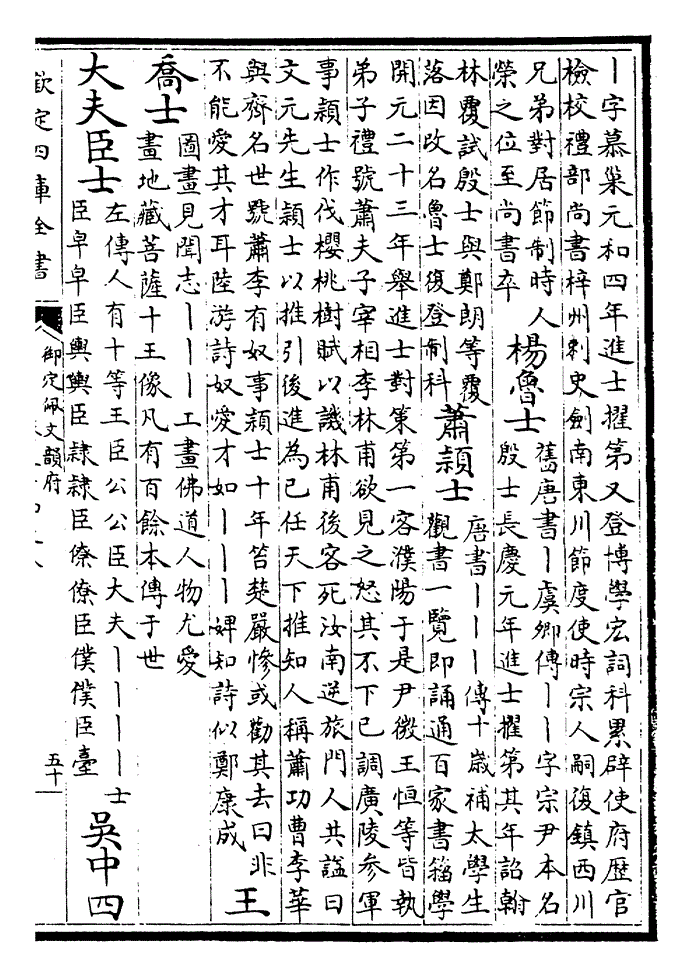 丨字慕巢元和四年進士擢第又登博學宏詞科累辟使府歴官
檢校禮部尚書梓州刺史劍南東川節度使時宗人嗣復鎮西川
兄弟對居節制時人
榮之位至尚書卒
楊魯士
舊唐書丨虞卿傳丨丨字宗尹本名
殷士長慶元年進士擢第其年詔翰
林覆試殷士與鄭朗等覆
落因改名魯士復登制科
蕭頴士
唐書丨丨丨傳十歲補太學生
觀書一覽即誦通百家書籀學
開元二十三年舉進士對策第一客濮陽于是尹徴王恒等皆執
弟子禮號蕭夫子宰相李林甫欲見之怒其不下已調廣陵參軍
事頴士作伐櫻桃樹賦以譏林甫後客死汝南逆旅門人共諡曰
文元先生頴士以推引後進為已任天下推知人稱蕭功曹李華
與齊名世號蕭李有奴事頴士十年笞楚嚴慘或勸其去曰非
不能愛其才耳陸游詩奴愛才如丨丨丨婢知詩似鄭康成
王
喬士
圖畫見聞志丨丨丨工畫佛道人物尤愛
畫地藏菩薩十王像凡有百餘本傳于世
大夫臣士
左傳人有十等王臣公公臣大夫丨丨丨丨士
臣皁皁臣輿輿臣隷隷臣僚僚臣僕僕臣臺
吳中四
欽定四庫全書
御定佩文韻府
五十